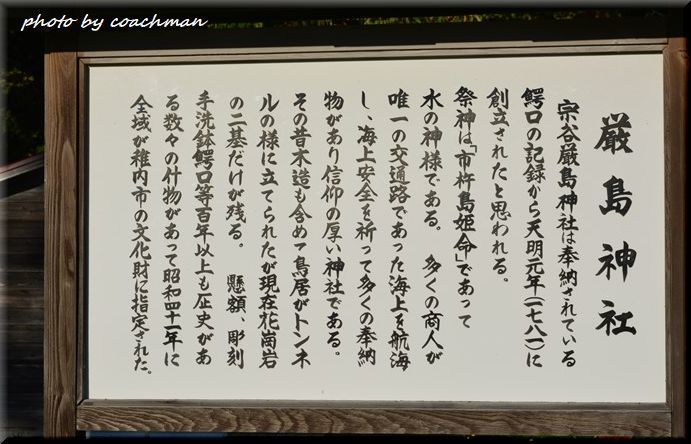 photo by coachman
厳島神社
宗谷厳島神社は奉納されている
鰐口の記録から天明元年(一七八一)に
創立されたと思われる。
祭神は「市杵島姫命」であって
水の神様である。 多くの商人が
唯一の交通路であった海上を航海
し、海上安全を祈って多くの奉納
物があり信仰の厚い神社である。
その昔木造も含めて鳥居がトンネ
ルの様に立てられたが現在花崗岩
の二基だけが残る。 懸額、彫刻
手洗鉢鰐口等百年以上も歴史があ
る数々の什物があって昭和四十一年に
全域が稚内市の文化財に指定された。